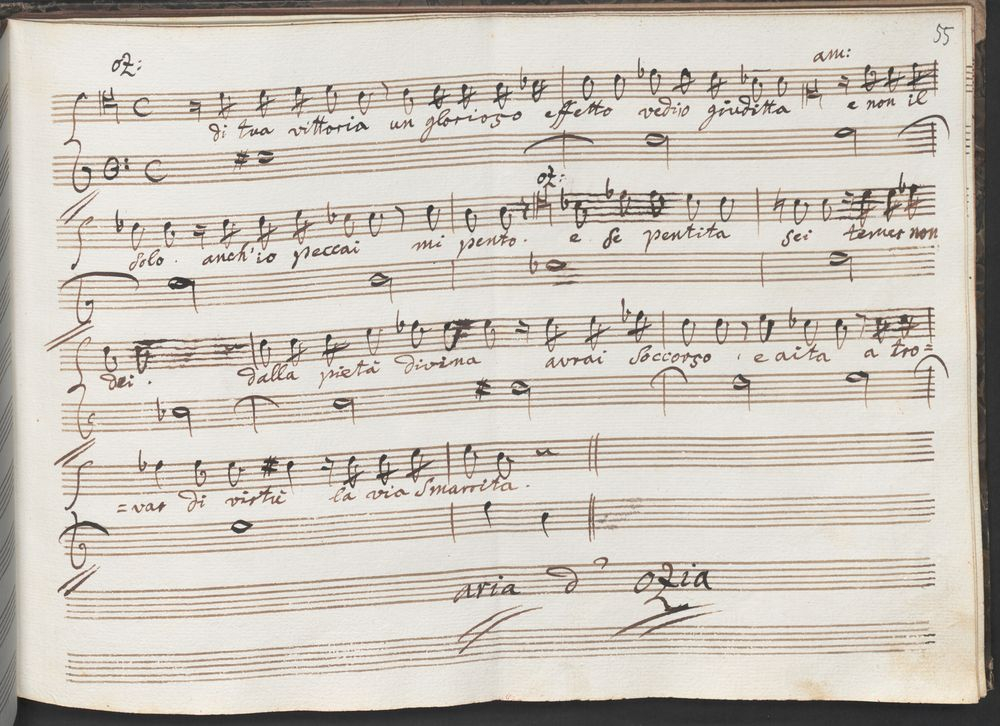 55
oz: am:
di tua vittoria un glorioso effetto vedio giuditta e non il
oz:
solo. anch'io peccai mi pento. e se pentita sei temer non
dei. dalla pietà divina avrai soccorso, e aita a tro=
=var di virtù la via smarrita.
aria d' ozia